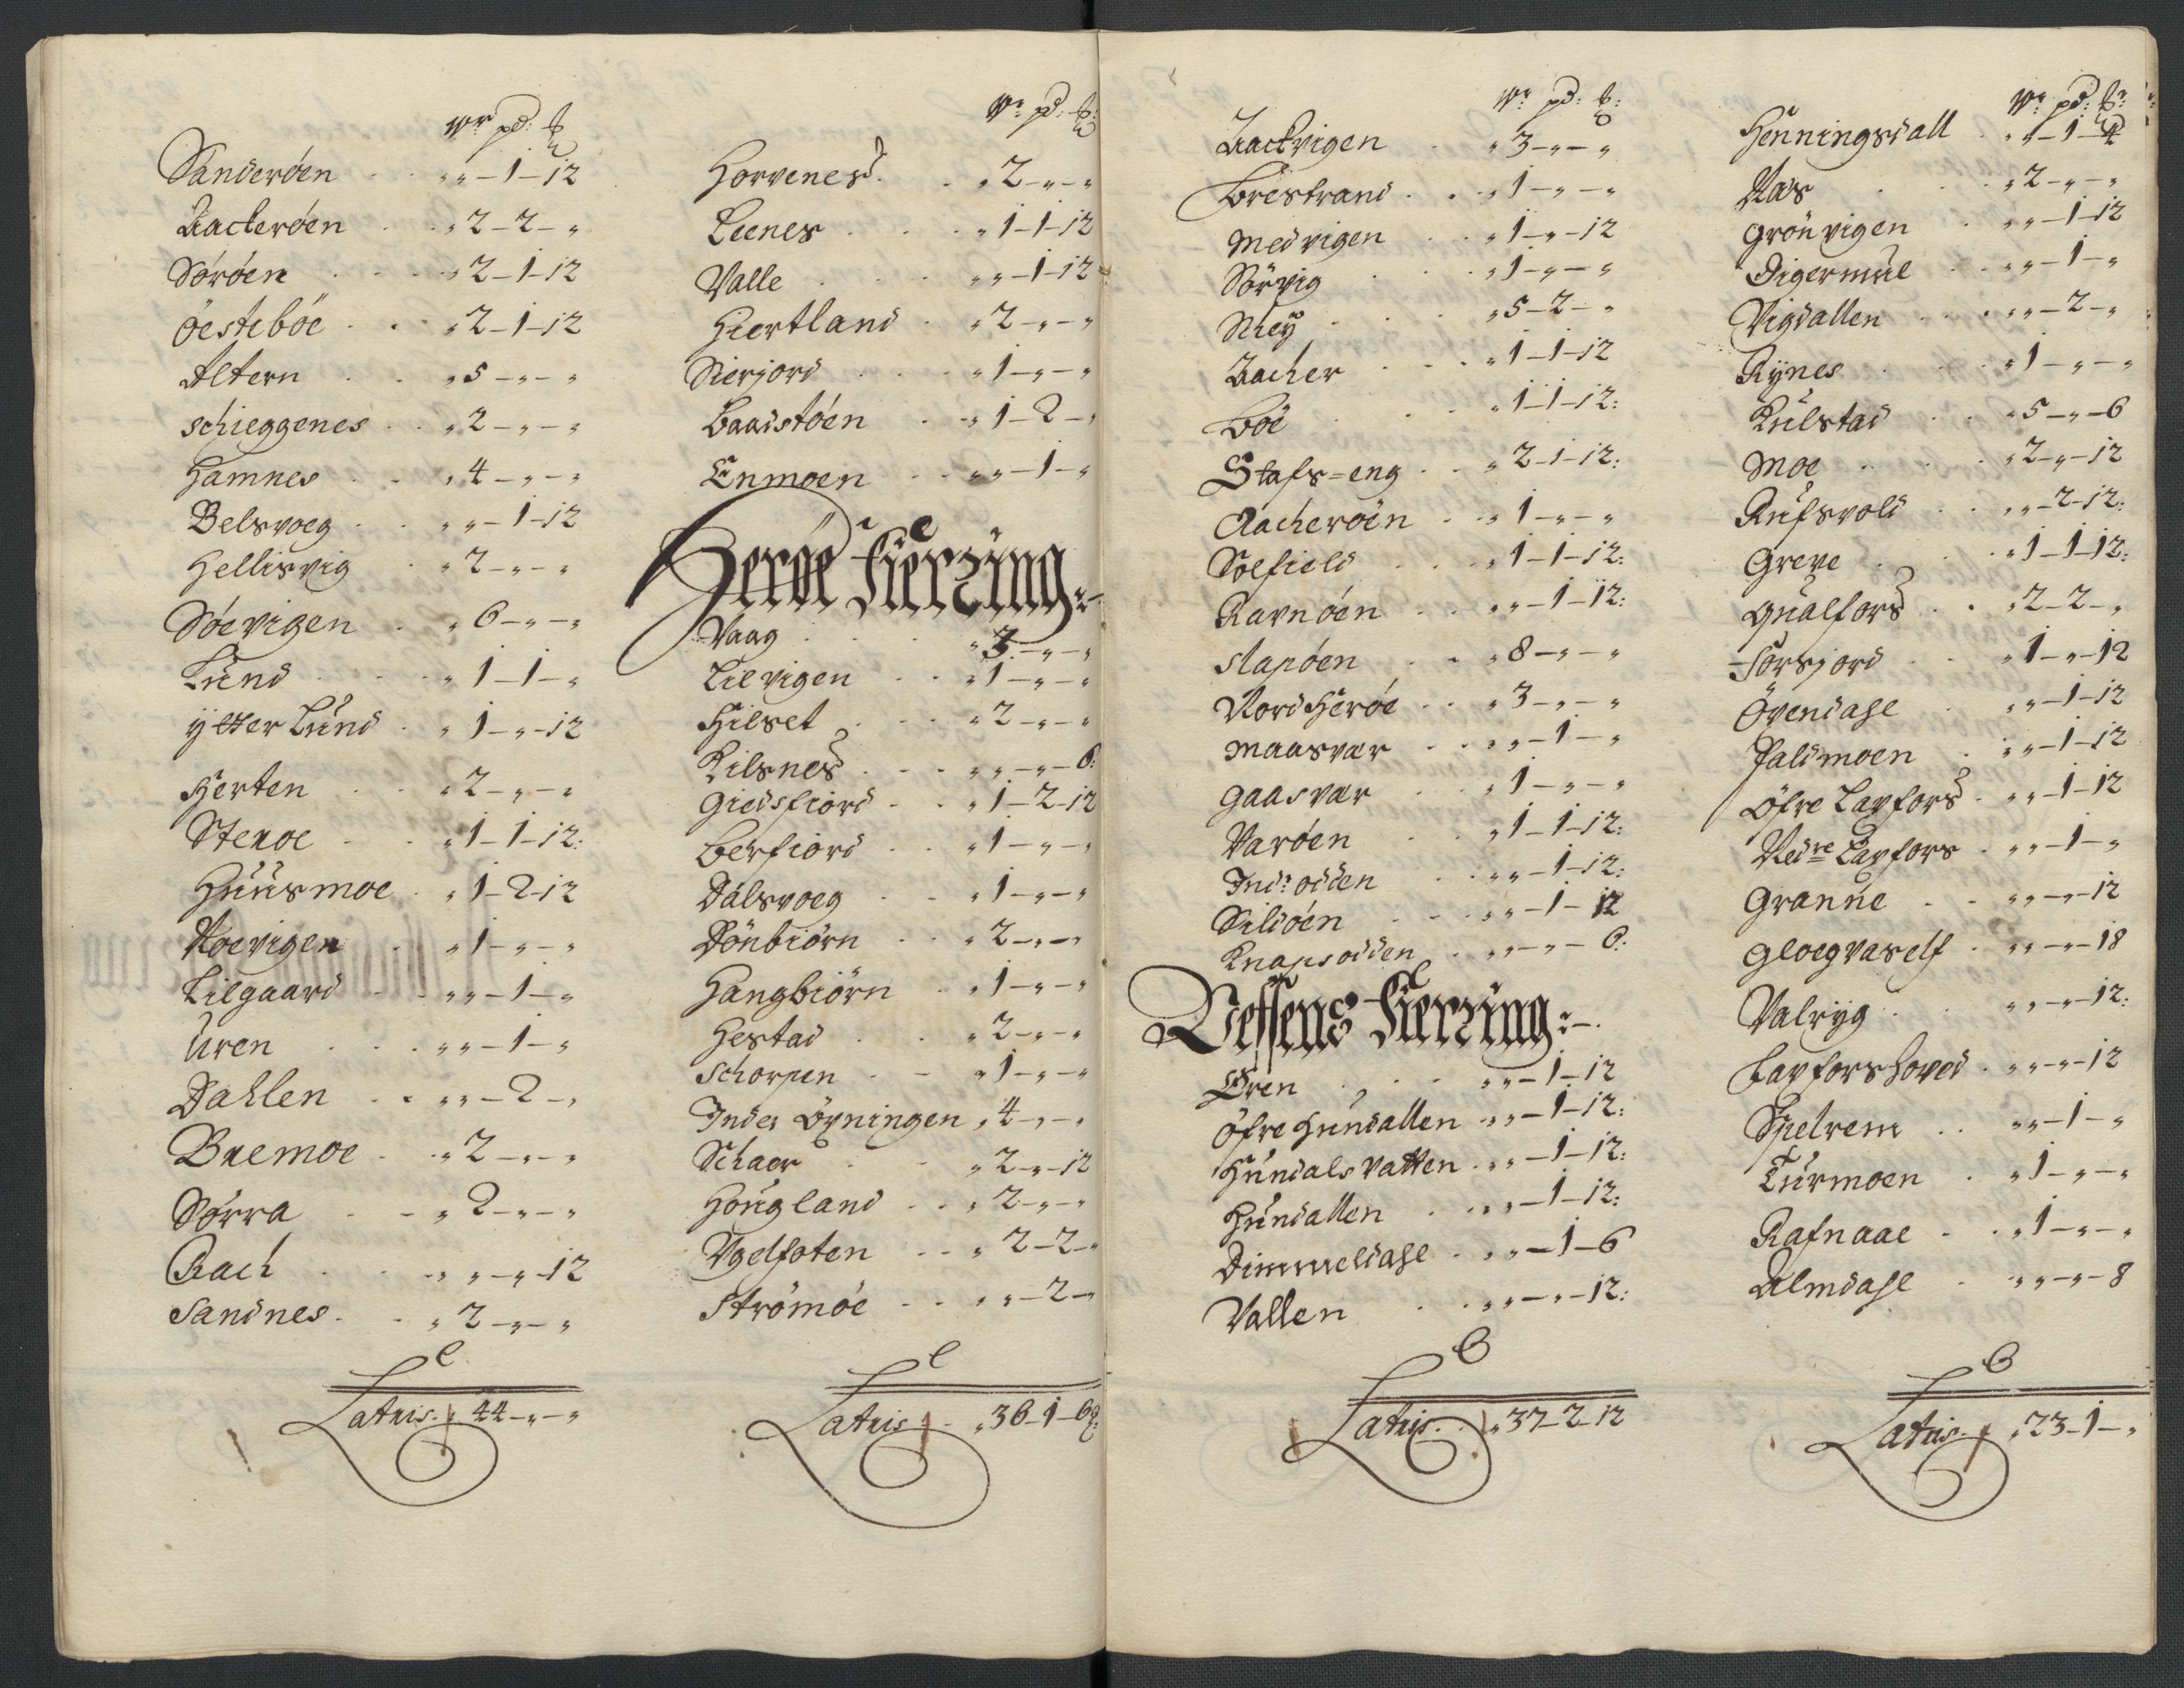 Wr pd: ℔
Sanderöen . . „ „ - 1 - 12
Aackeröen . . „ 2 - 2 - „
Söröen . . . „ 2 - 1 - 12
Öesteböe . . „ 2 - 1 - 12
Altern . . „ 5 - „ - „
Schieggenes . . „ 2 - „ - „
Hamnes . . „ 4 - „ - „
Belsvoeg . „ „ - 1 - 12
Hellisvig . „ 2 - „ - „
Söevigen . „ 6 - „ - „
Lund . . „ 1 - 1 - „
ÿtter Lund . „ 1 - „ - 12
Herten . . „ 2 - „ - „
Stenoe . . „ 1 - 1 - 12:
Huusmoe . „ 1 - 2 - 12
Roevigen . „ 1 - „ - „
Lilgaard . „ „ - 1 - „
Uren . . . „ „ - 1 - „
Dahlen . . „ „ - 2 - „
Bremoe . „ 2 - „ - „
Sörra . . „ 2 - „ - „
Rach . . „ „ - „ - 12
Sandnes . . „ 2 - „ - „
Latus . „ 44 - „ - „
Wr pd: ℔:
Horvenes . . „ 2 - „ - „
Leenes . . . „ 1 - 1 - 12
Valle . . . „ „ - 1 - 12
Hiertland . „ 2 - „ - „
Sierjord . . „ 1 - „ - „
Baadstöen . . „ 1 - 2 - „
Enmoen . . „ „ - 1 - „
Heröe Fierding:-
Vaag . . . „ 3 - „ - „
Lilvigen . . „ 1 - „ - „
Hilset . . . „ 2 - „ - „
Kilsnes . . . „ „ - „ - 6:
Giedsfiord . . „ 1 - 2 - 12
Berfiord . . „ 1 - „ - „
Dalsvoeg . . „ 1 - „ - „
Dönbiörn . . „ 2 - „ - „
Hangbiörn . „ 1 - „ - „
Hestad . . „ 2 - „ - „
Schorpen . - „ 1 - „ - „
Inder Öxningen „ 4 - „ - „
Schaer . . „ 2 - „ - 12
Hougland . . „ 2 - „ - „
Vgelfoten . . „ 2 - 2 - „
Strömöe . . „ „ - 2 - „
Latus . „ 36 - 1 - 6
Wr pd: ℔:
Aackvigen . „ 3 - „ - „
Brestrand . . „ 1 - „ - „
Medvigen . . „ 1 - „ - 12
Sörvig . . . „ 1 - „ - „
Meÿ . . . „ 5 - 2 - „
Aacher . . . „ 1 - 1 - 12
Böe . . „ 1 - 1 - 12:
Stafs=eng . . „ 2 - 1 - 12:
Aacheröen . . „ 1 - „ - „
Solfield . . „ 1 - 1 - 12:
Ravnöen . . „ „ - 1 - 12:
Slapöen . . „ 8 - „ - „
Nord Heröe . . „ 3 - „ - „
Maasvær . . „ „ - 1 - „
Gaasvær . . „ 1 - „ - „
Varöen . . „ 1 - 1 - 12:
Indr odden . . „ „ - 1 - 12:
Sildöen . . „ „ - 1 - 12
Knapsodden . „ „ - „ - 6:
Nessens Fierding:-
Ören . . . „ „ - 1 - 12
Öfre Hundallen „ „ - 1 - 12:
Hundals Vatten . „ „ - 1 - 12:
Hundallen . „ „ - 1 - 12:
Dimmeldahl . „ „ - 1 - 6
Vallen . . „ „ - „ - 12:
Latus . „ 37 - 2 - 12
Wr pd: ℔:
Henningsdall . „ „ - 1 - 4
Næs . . . „ 2 - „ - „
Grönvigen . „ „ - 1 - 12
Digermul . . „ „ - 1 - „
Vigdallen . . „ „ - 2 - „
Rÿnes . . . „ 1 - „ - „
Kulstad . . „ 5 - „ - 6
Moe . . . „ 2 - „ - 12
Rufsvold . . „ „ - 2 - 12:
Greve . . „ 1 - 1 - 12:
Qualfors . . „ 2 - 2 - „
Forsjord . . „ 1 - „ - 12
Övendahl . „ „ - 1 - 12
Paldmoen . „ „ - 1 - 12
Öfre Laxfors . „ „ - 1 - 12
Nedre Laxfors . „ „ - 1 - „
Granne . . „ „ - „ - 12
Gloegvaself . „ „ - „ - 18
Valrÿg . . „ „ - „ - 12:
Laxforshoved . „ „ - „ - 12
Spelrem . . „ „ - 1 - „
Turmoen . „ 1 - „ - „
Rafnaae . . „ 1 - „ - „
Almdahl . „ „ - „ - 8
Latus . „ 23 - 1 - „